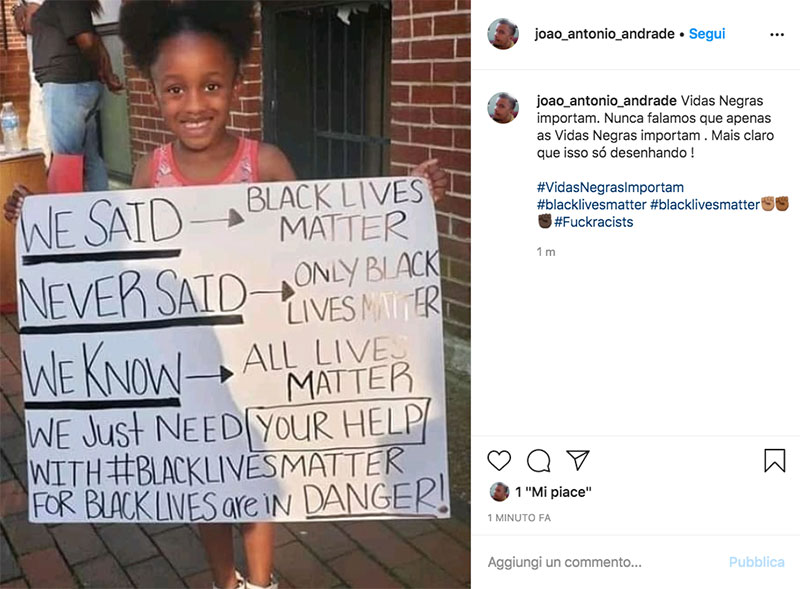 WE SAID → BLACK LIVES
MATTER
NEVER SAID → ONLY BLACK
LIVES MATTER
WE KNOW → ALL LIVES
MATTER
WE JUST NEED YOUR HELP
WITH #BLACKLIVESMATTER
FOR BLACK LIVES are iN DANGER!
joao_antonio_andrade • Segui
joao_antonio_andrade Vidas Negras
importam. Nunca falamos que apenas
as Vidas Negras importam . Mais claro
que isso só desenhando !
#VidasNegrasImportam
#blacklivesmatter #blacklivesmatter✊🏽✊🏾
✊🏿#Fuckracists
1 m
1 "Mi piace"
1 MINUTO FA
Aggiungi un commento... Pubblica